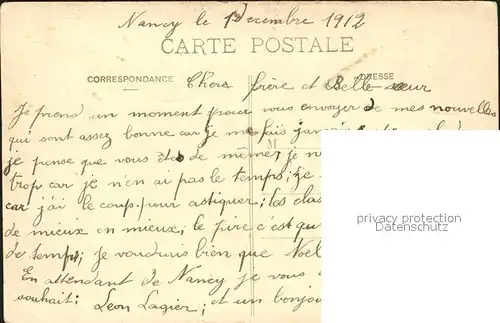 Nancy le 1 Decembre 1912
CARTE POSTALE
CORRESPONDANCE
ADRESSE
Chers frère et Belle sœur
Je prend un moment pour vous envoyer de mes nouvelles
qui sont assez bonne car je me fais jamais
je pense que vous êtes de même, je n
trop car je n'en ai pas le temps; je
car j'ai le coup pour astiquer; les clas
de mieux en mieux; le pire c'est qu
de temps; je voudrais bien que Noel
En attendant de Nancy je vous
souhait: Leon Lagier; et un bonjo
M
privacy protection
Datenschutz